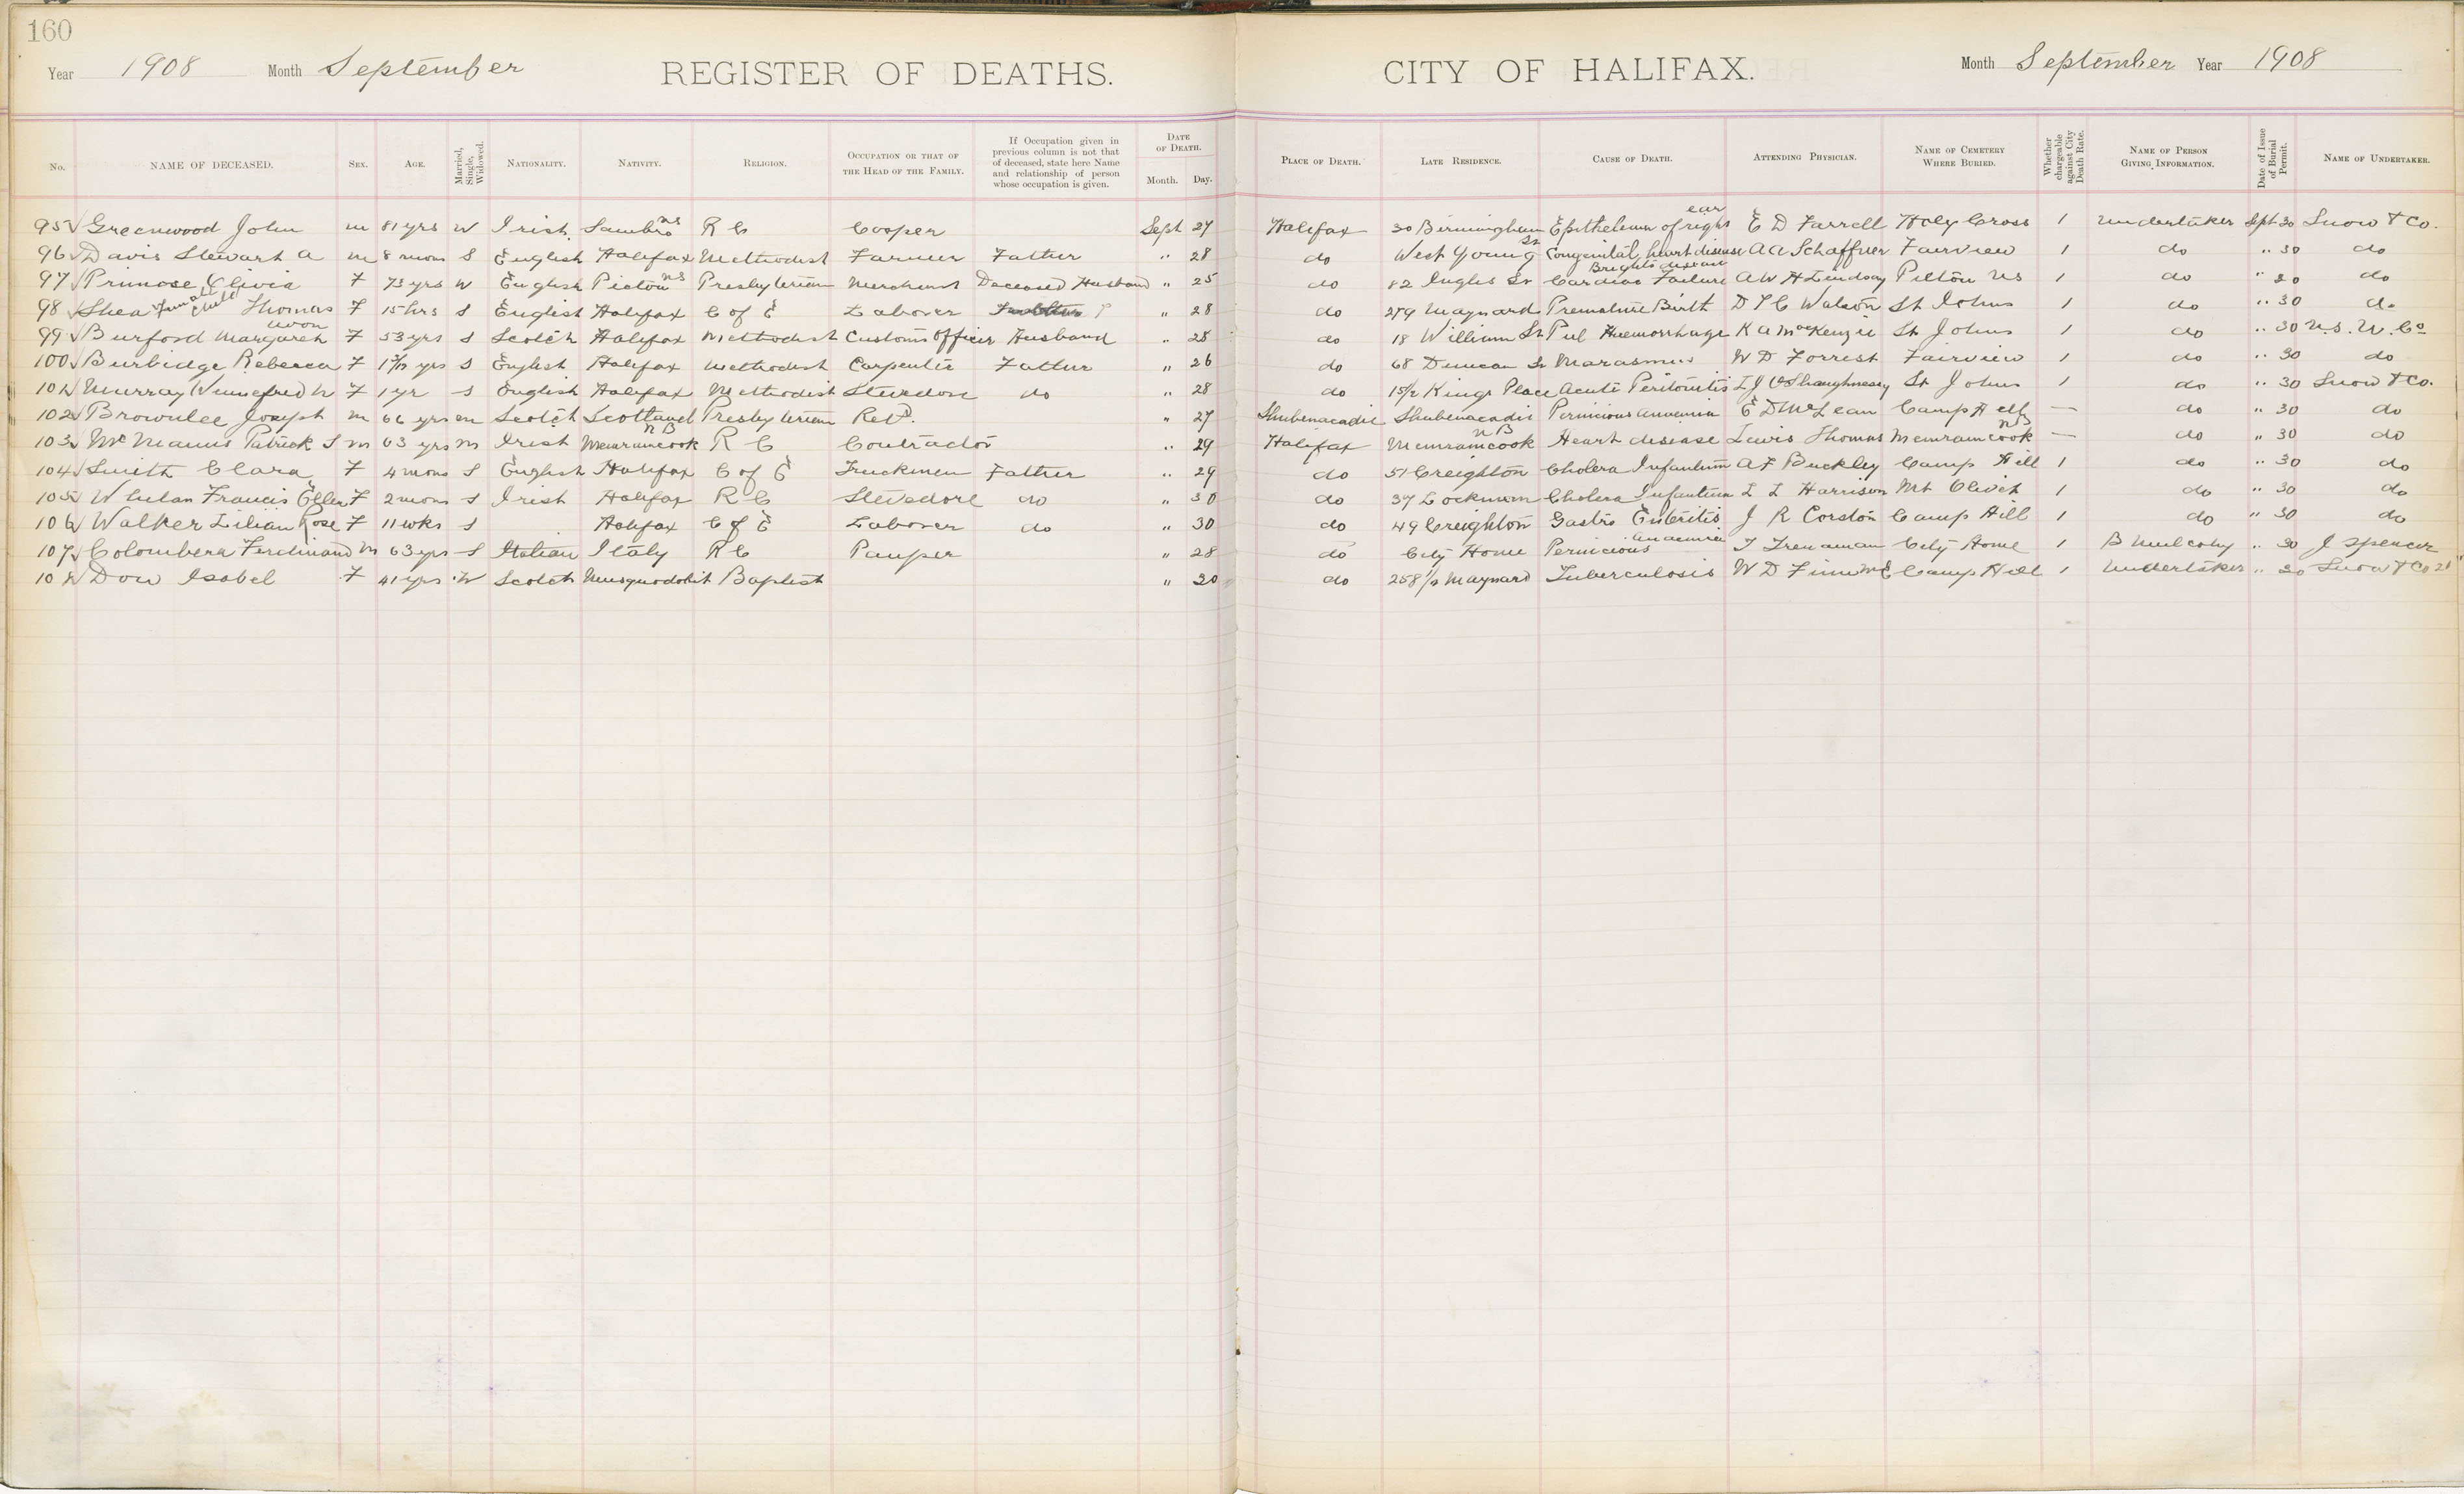 160
Year 1908 Month September REGISTER OF DEATHS. CITY OF HALIFAX. Month September Year 1908
No. NAME OF DECEASED. SEX. AGE. Married, Single, Widowed. NATIONALITY. NATIVITY. RELIGION. OCCUPATION OR THAT OF THE HEAD OF THE FAMILY. If Occupation given in previous column is not that of deceased, state here Name and relationship of person whose occupation is given. DATE OF DEATH. Month. Day. PLACE OF DEATH. LATE RESIDENCE. CAUSE OF DEATH. ATTENDING PHYSICIAN. NAME OF CEMETERY WHERE BURIED. Whether chargeable against City Death Rate. NAME OF PERSON GIVING INFORMATION. Date of Issue of Burial Permit. NAME OF UNDERTAKER.
95 Greenwood John m 81 yrs W Irish Sambro NS R C Cooper Sept 27 Halifax 30 Birmingham Epithelium of right ear E D Farrell Holy Cross 1 Undertaker Sept 30 Snow & Co.
96 Davis Stewart A m 8 mons S English Halifax Methodist Farmer Father " 28 do West Young St Congenital heart disease A A Schaffner Fairview 1 do " 30 do
97 Primose Olivia F 73 yrs W English Pictou NS Presbyterian Merchant Deceased Husband " 25 do 82 Inglis St Brights disease Cardiac Failure A W H Lindsay Pictou NS 1 do " 30 do
98 Shea female child Thomas F 15 hrs S English Halifax C of E Laborer " 28 do 279 Maynard Premature Birth D T C Watson St Johns 1 do " 30 do
99 Burford Margaret Avon F 53 yrs S Scotch Halifax Methodist Customs Officer Husband " 28 do 18 William St Pul Haemorrhage K A McKenzie St Johns 1 do " 30 N.S. U. Co
100 Burbidge Rebecca F yrs S English Halifax Methodist Carpenter Father " 26 do 68 Duncan St Marasmus W D Forrest Fairview 1 do " 30 do
101 Murray Winnefred W F 1 yr S English Halifax Methodist Stevedore do " 28 do 15 1/2 Kings Place Acute Peritonitis L J O'Shaughnessy St Johns 1 do " 30 Snow & Co.
102 Brownlee Joseph m 66 yrs m Scotch Scotland Presbyterian Retd. " 27 Shubenacadie Shubenacadie Pernicious anaemia E D McLean Camp Hill — do " 30 do
103 McManus Patrick S m 63 yrs m Irish Memramcook N B R C Contractor " 29 Halifax Memramcook N B Heart disease Lewis Thomas Memramcook N B — do " 30 do
104 Smith Clara F 4 mons S English Halifax C of E Truckman Father " 29 do 51 Creighton Cholera Infantum A F Buckley Camp Hill 1 do " 30 do
105 Whelan Francis Ellen F 2 mons S Irish Halifax R C Stevedore do " 30 do 37 Lockman Cholera Infantum L L Harrison Mt Olivet 1 do " 30 do
106 Walker Lilian Rose F 11 wks S Halifax C of E Laborer do " 30 do 49 Creighton Gastro Enteritis J R Corston Camp Hill 1 do " 30 do
107 Colombera Ferdinand M 63 yrs S Italian Italy R C Pauper " 28 do City Home Pernicious anaemia T Trenaman City Home 1 B Mulcahy " 30 J Spencer
108 Dow Isabel F 41 yrs W Scotch Musquodobit Baptist " 30 do 258 1/2 Maynard Tuberculosis W D Finn M E Camp Hill 1 Undertaker " 30 Snow & Co 21